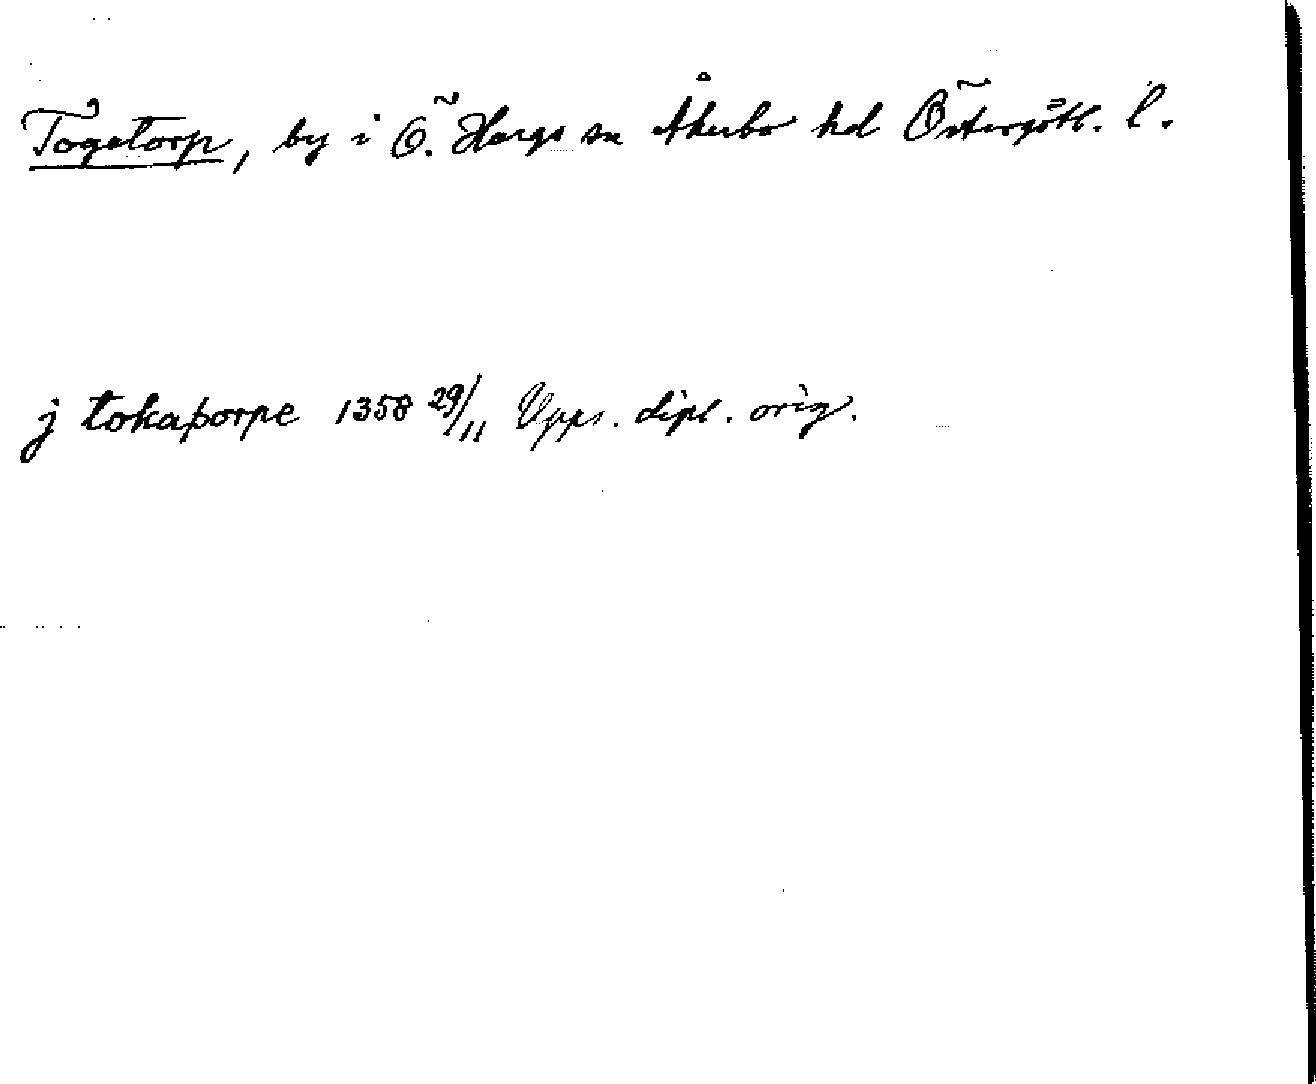 Togetorp, by i Ö. Hargs sn Åkerbo hd Östergötl. l.
j tokaþorpe 1358 29/11 Upps. dipl. orig.